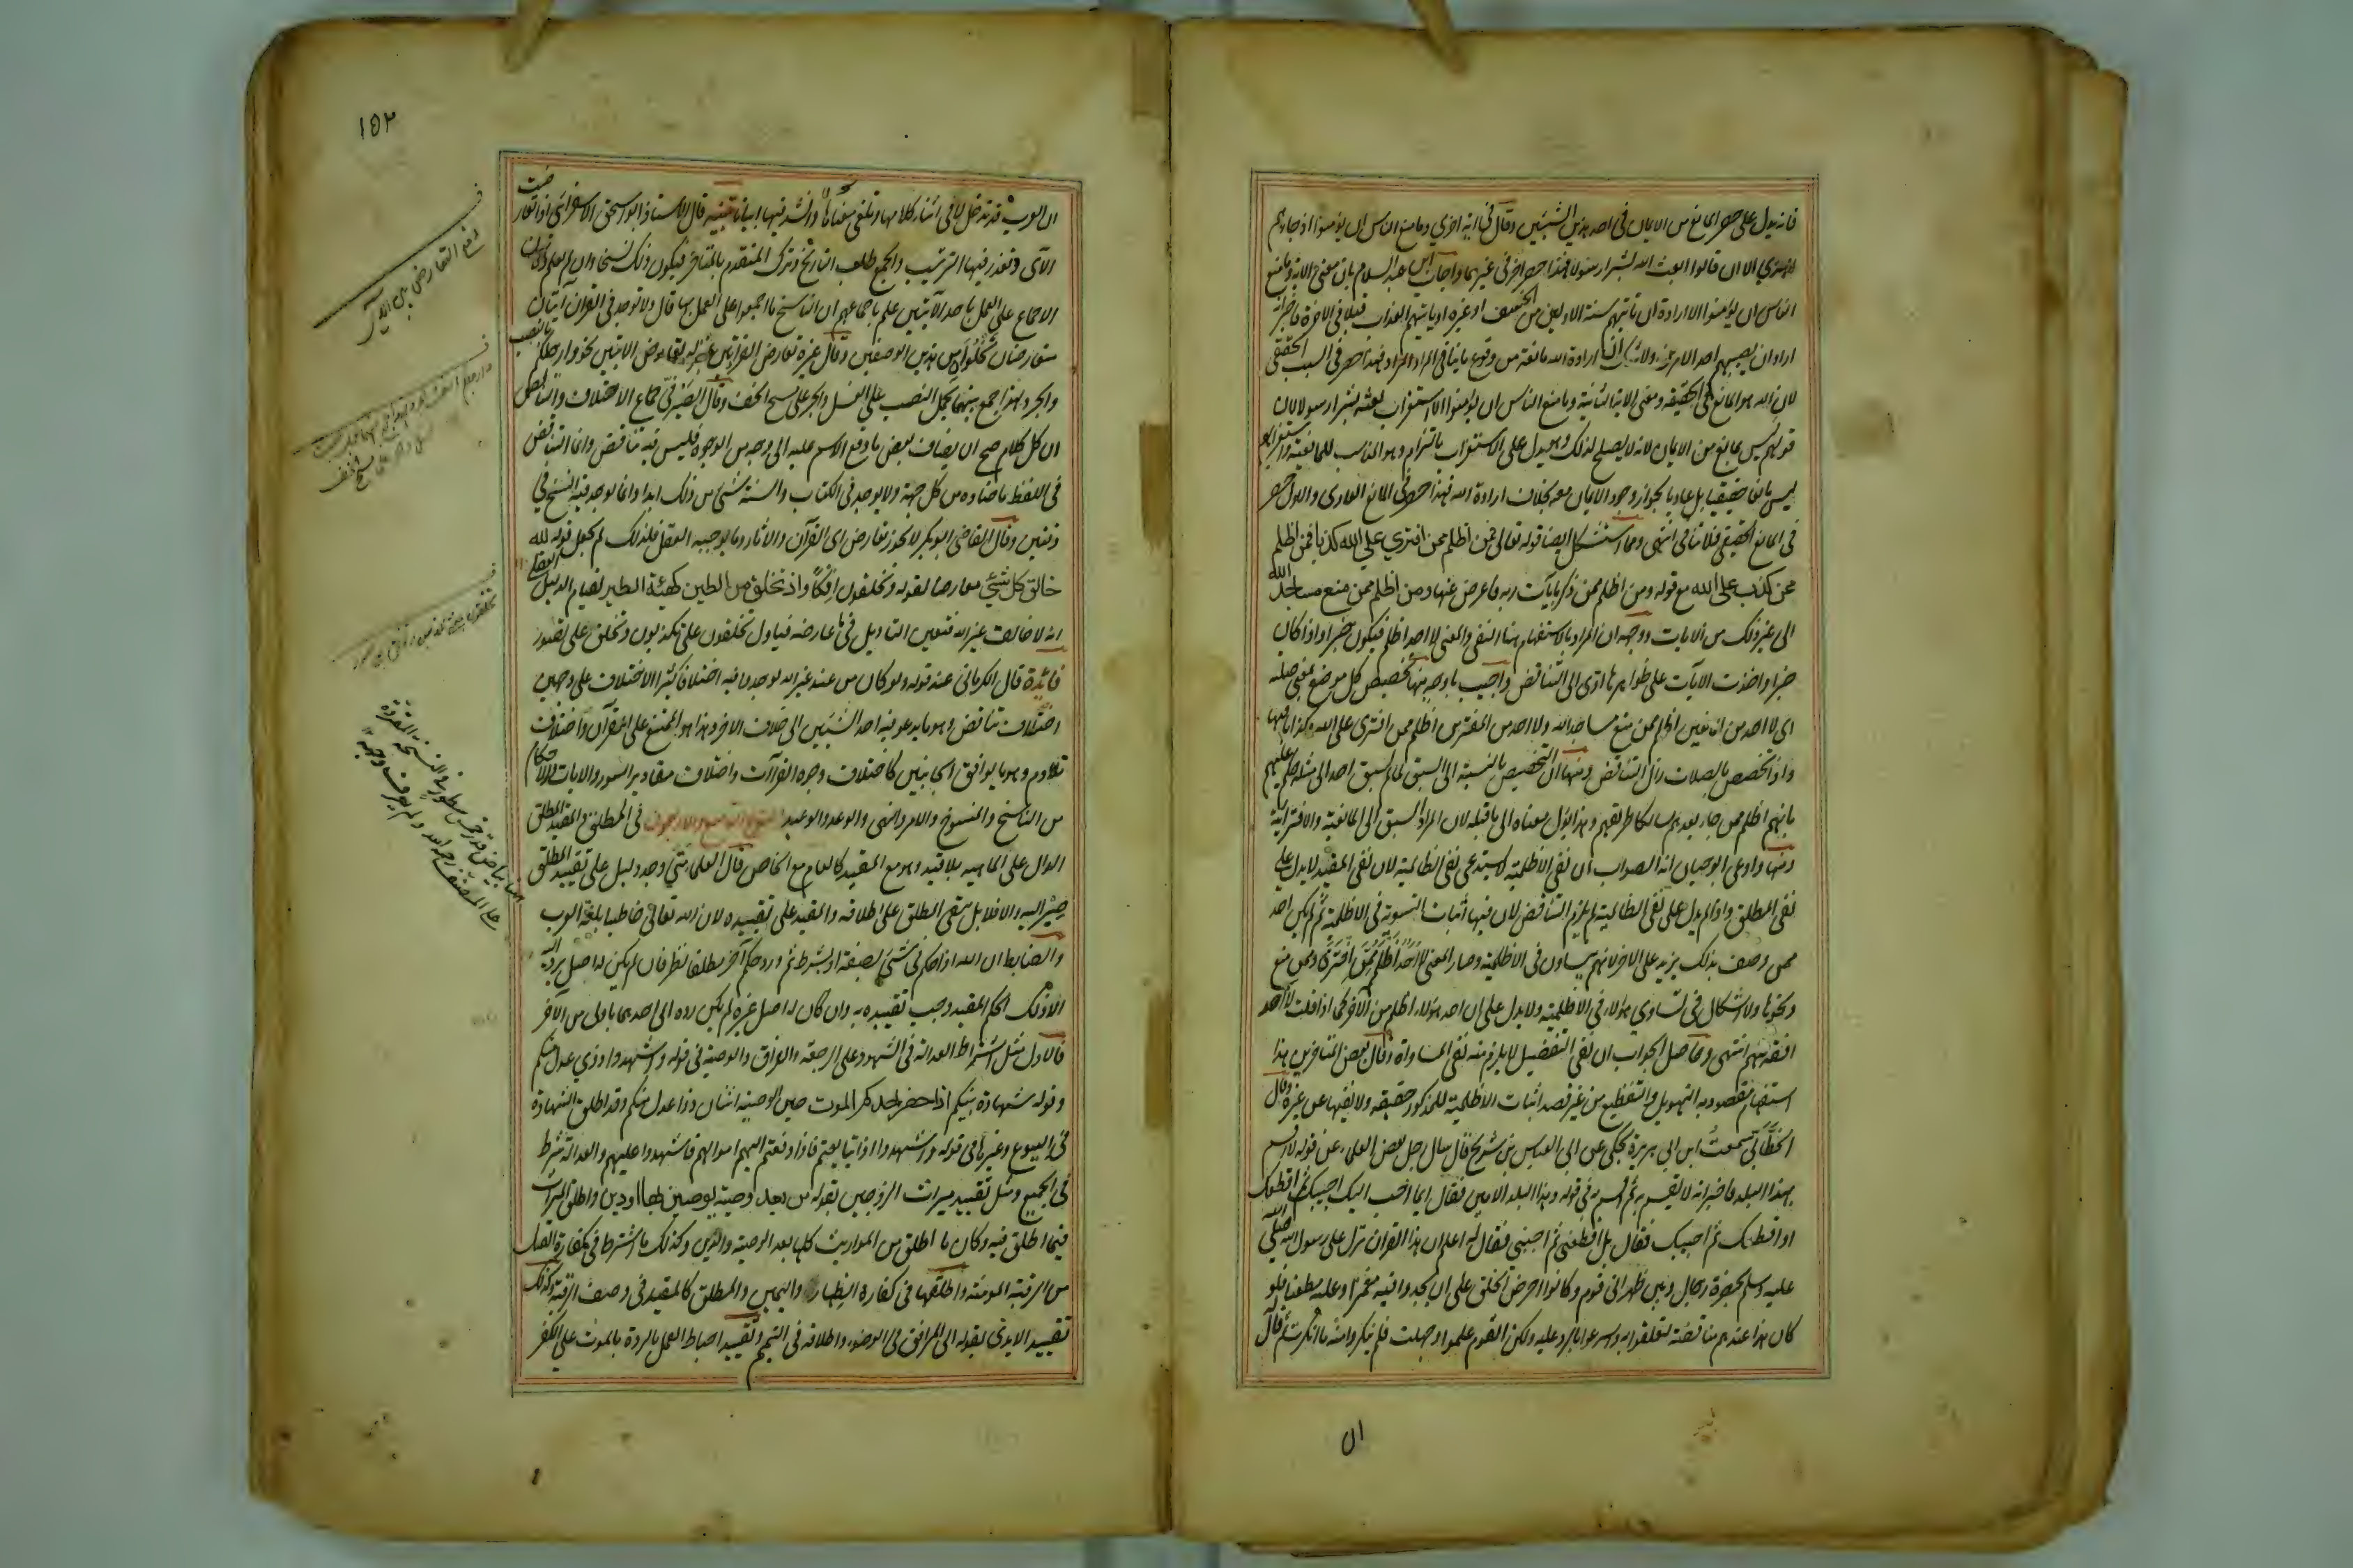 فانه يدل على حصر المانع من الايمان فى احد هذين الشيئين وقال فى اية اخرى وما منع الناس ان يؤمنوا اذ جاءهم
الهدى الا ان قالوا ابعث الله بشرا رسولا فهذا حصر اخر فى غيرهما واجاب ابن عبد السلام بان معنى الاية وما منع
الناس ان يؤمنوا الا ارادة ان تاتيهم سنة الاولين من الخسف او غيره او ياتيهم العذاب قبلا فى الاخرة فاخبر انه
اراد ان يصيبهم احد الامرين ولا شك ان ارادة الله مانعة من وقوع ما ينافى المراد فهذا حصر فى السبب الحقيقى
لان الله هو المانع فى الحقيقة ومعنى الاية الثانية وما منع الناس ان يؤمنوا الا استغراب بعثه بشرا رسولا لان
قولهم ليس مانع من الايمان لانه لا يصلح لذلك وهو يدل على الاستغراب بالتزام وهو المناسب للمانعية واستغرابهم
ليس مانعا حقيقيا بل عاديا لجواز وجود الايمان معه بخلاف ارادة الله فهذا حصر فى المانع العادى والاول حصر
فى المانع الحقيقى فلا تنافى انتهى ومما استشكل ايضا قوله تعالى فمن اظلم ممن افترى على الله كذبا فمن اظلم
ممن كذب على الله مع قوله ومن اظلم ممن ذكر بآيات ربه فاعرض عنها ومن اظلم ممن منع مساجد الله
الى غير ذلك من الايات ووجهه ان المراد بالاستفهام هنا النفى والمعنى لا احد اظلم فيكون خبرا واذا كان
خبرا واخذت الآيات على ظواهرها ادى الى التناقض واجيب باوجه منها تخصيص كل موضع بمعنى صلته
اى لا احد من المانعين اظلم ممن منع مساجد الله ولا احد من المفترين اظلم ممن افترى على الله وكذا باقيها
واذا تخصص بالصلات زال التناقض ومنها ان التخصيص بالنسبة الى السبق لما لم يسبق احد الى مثله حكم عليهم
بانهم اظلم ممن جاء بعدهم سالكا طريقهم وهذا يؤل معناه الى ما قبله لان المراد السبق الى المانعية والافترائية
ومنها وادعى ابو حيان انه الصواب ان نفى الاظلمية لا يستدعى نفى الظالمية لان نفى المقيد لا يدل على
نفى المطلق واذا لم يدل على نفى الظالمية لم يلزم التناقض لان فيها اثبات التسوية فى الاظلمية ثم لم يكن احد
ممن وصف بذلك يزيد على الاخر لانهم يتساوون فى الاظلمية وصار المعنى لا احد اظلم ممن افترى وممن منع
ونحوها ولا اشكال فى تساوى هؤلاء فى الاظلمية ولا يدل على ان احد هؤلاء اظلم من الآخر كما اذا قلت لا احد
افقه منهم انتهى وحاصل الجواب ان نفى التفضيل لا يلزم منه نفى المساواة وقال بعض المتاخرين هذا
استفهام مقصود به التهويل والتفظيع من غير قصد اثبات الاظلمية للمذكور حقيقة ولا نفيها عن غيره وقال
الخطابى سمعت ابن ابى هريرة يحكى عن ابى العباس بن شريح قال سال رجل بعض العلماء عن قوله لا اقسم
بهذا البلد فاخبر انه لا يقسم به ثم اقسم به فى قوله وهذا البلد الامين فقال ايما احب اليك اجيبك ثم اقطعك
او اقطعك ثم اجيبك فقال بل اقطعنى ثم اجبنى فقال له اعلم ان هذا القران نزل على رسول الله صلى
عليه وسلم بحضرة رجال وبين ظهرانى قوم وكانوا احرص الخلق على ان يجدوا فيه مغمزا وعليه مطعنا فلو
كان هذا عندهم مناقضة لتعلقوا به واسرعوا بالرد عليه ولكن القوم علموا وجهلت فلم ينكروا منه ما انكرت ثم قال
ان
١٥٢
ان العرب قد تدخل لا فى اثناء كلامها وتلغى معناها وانشد فيها ابياتا تنبيه قال الاستاذ ابو اسحق الاسفرائنى اذا تعارضت
الآى وتعذر فيها الترتيب والجمع طلب التاريخ وترك المتقدم بالمتاخر فيكون ذلك نسخا وان لم يعلم وكان
الاجماع على العمل باحد الآيتين علم باجماعهم ان الناسخ ما اجمعوا على العمل بها قال ولا توجد فى القرآن آيتان
متعارضتان تخلوان من هذين الوصفين وقال غيره تعارض القراءتين بمنزلة تعارض الايتين نحو وارجلكم بالنصب
والجر ولهذا جمع بينهما بحمل النصب على الغسل والجر على مسح الخف وقال الصيرفى جماع الاختلاف والتناقض
ان كل كلام صح ان يضاف بعض ما وقع الاسم عليه الى وجه من الوجوه فليس فيه تناقض وانما التناقض
فى اللفظ ما ضاده من كل جهة ولا يوجد فى الكتاب والسنة شئ من ذلك ابدا وانما يوجد فيه النسخ فى
وقتين وقال القاضى ابو بكر لا يجوز تعارض اى القرآن والاثار وما يوجبه العقل فلذلك لم يجعل قوله الله
خالق كل شيئ معارضا لقوله وتخلقون افكا واذ تخلق من الطين كهيئة الطير لقيام الدليل العقلى
انه لا خالق غير الله فتعين التاويل فى ما عارضه فيأول تخلقون على تكذبون وتخلق على تصور
فائدة قال الكرمانى عند قوله ولو كان من عند غير الله لوجدوا فيه اختلافا كثيرا الاختلاف على وجهين
اختلاف تناقض وهو ما يدعو فيه احد الشيئين الى خلاف الاخر وهذا هو الممتنع على القرآن واختلاف
تلاوم وهو ما يوافق الجانبين كاختلاف وجوه القراآت واختلاف مقادير السور والايات والاحكام
من الناسخ والمنسوخ والامر والنهى والوعد والوعيد النوع التاسع والاربعون فى المطلق والمقيد المطلق
الدال على الماهية بلا قيد وهو مع المقيد كالعام مع الخاص قال العلماء متى وجد دليل على تقييد المطلق
صير اليه والا فلا بل يبقى المطلق على اطلاقه والمقيد على تقييده لان الله تعالى خاطبنا بلغة العرب
والضابط ان الله اذا حكم فى شئ بصفة او بشرط ثم ورد حكم آخر مطلقا نظر فان لم يكن له اصل يرد اليه
الا ذلك الحكم المقيد وجب تقييده به وان كان له اصل غيره لم يكن رده الى احدهما باولى من الآخر
فالاول مثل اشتراط العدالة فى الشهود على الرجعة والفراق والوصية فى قوله واشهدوا ذوى عدل منكم
وقوله شهادة بينكم اذا حضر احدكم الموت حين الوصية اثنان ذوا عدل منكم وقد اطلق الشهادة
فى البيوع وغيرها فى قوله واشهدوا اذا تبايعتم فاذا دفعتم اليهم اموالهم فاشهدوا عليهم والعدالة شرط
فى الجميع ومثل تقييد ميراث الزوجين بقوله من بعد وصية يوصين بها او دين واطلق الميراث
فيما اطلق فيه وكان ما اطلق من المواريث كلها بعد الوصية والدين وكذلك ما اشترط فى كفارة القتل
من الرقبة المؤمنة واطلقها فى كفارة الظهار واليمين والمطلق كالمقيد فى وصف الرقبة وكذلك
تقييد الايدى بقوله الى المرافق فى الوضوء واطلاقه فى التيمم وتقييد احباط العمل بالردة بالموت على الكفر
دفع التعارض بين الآى